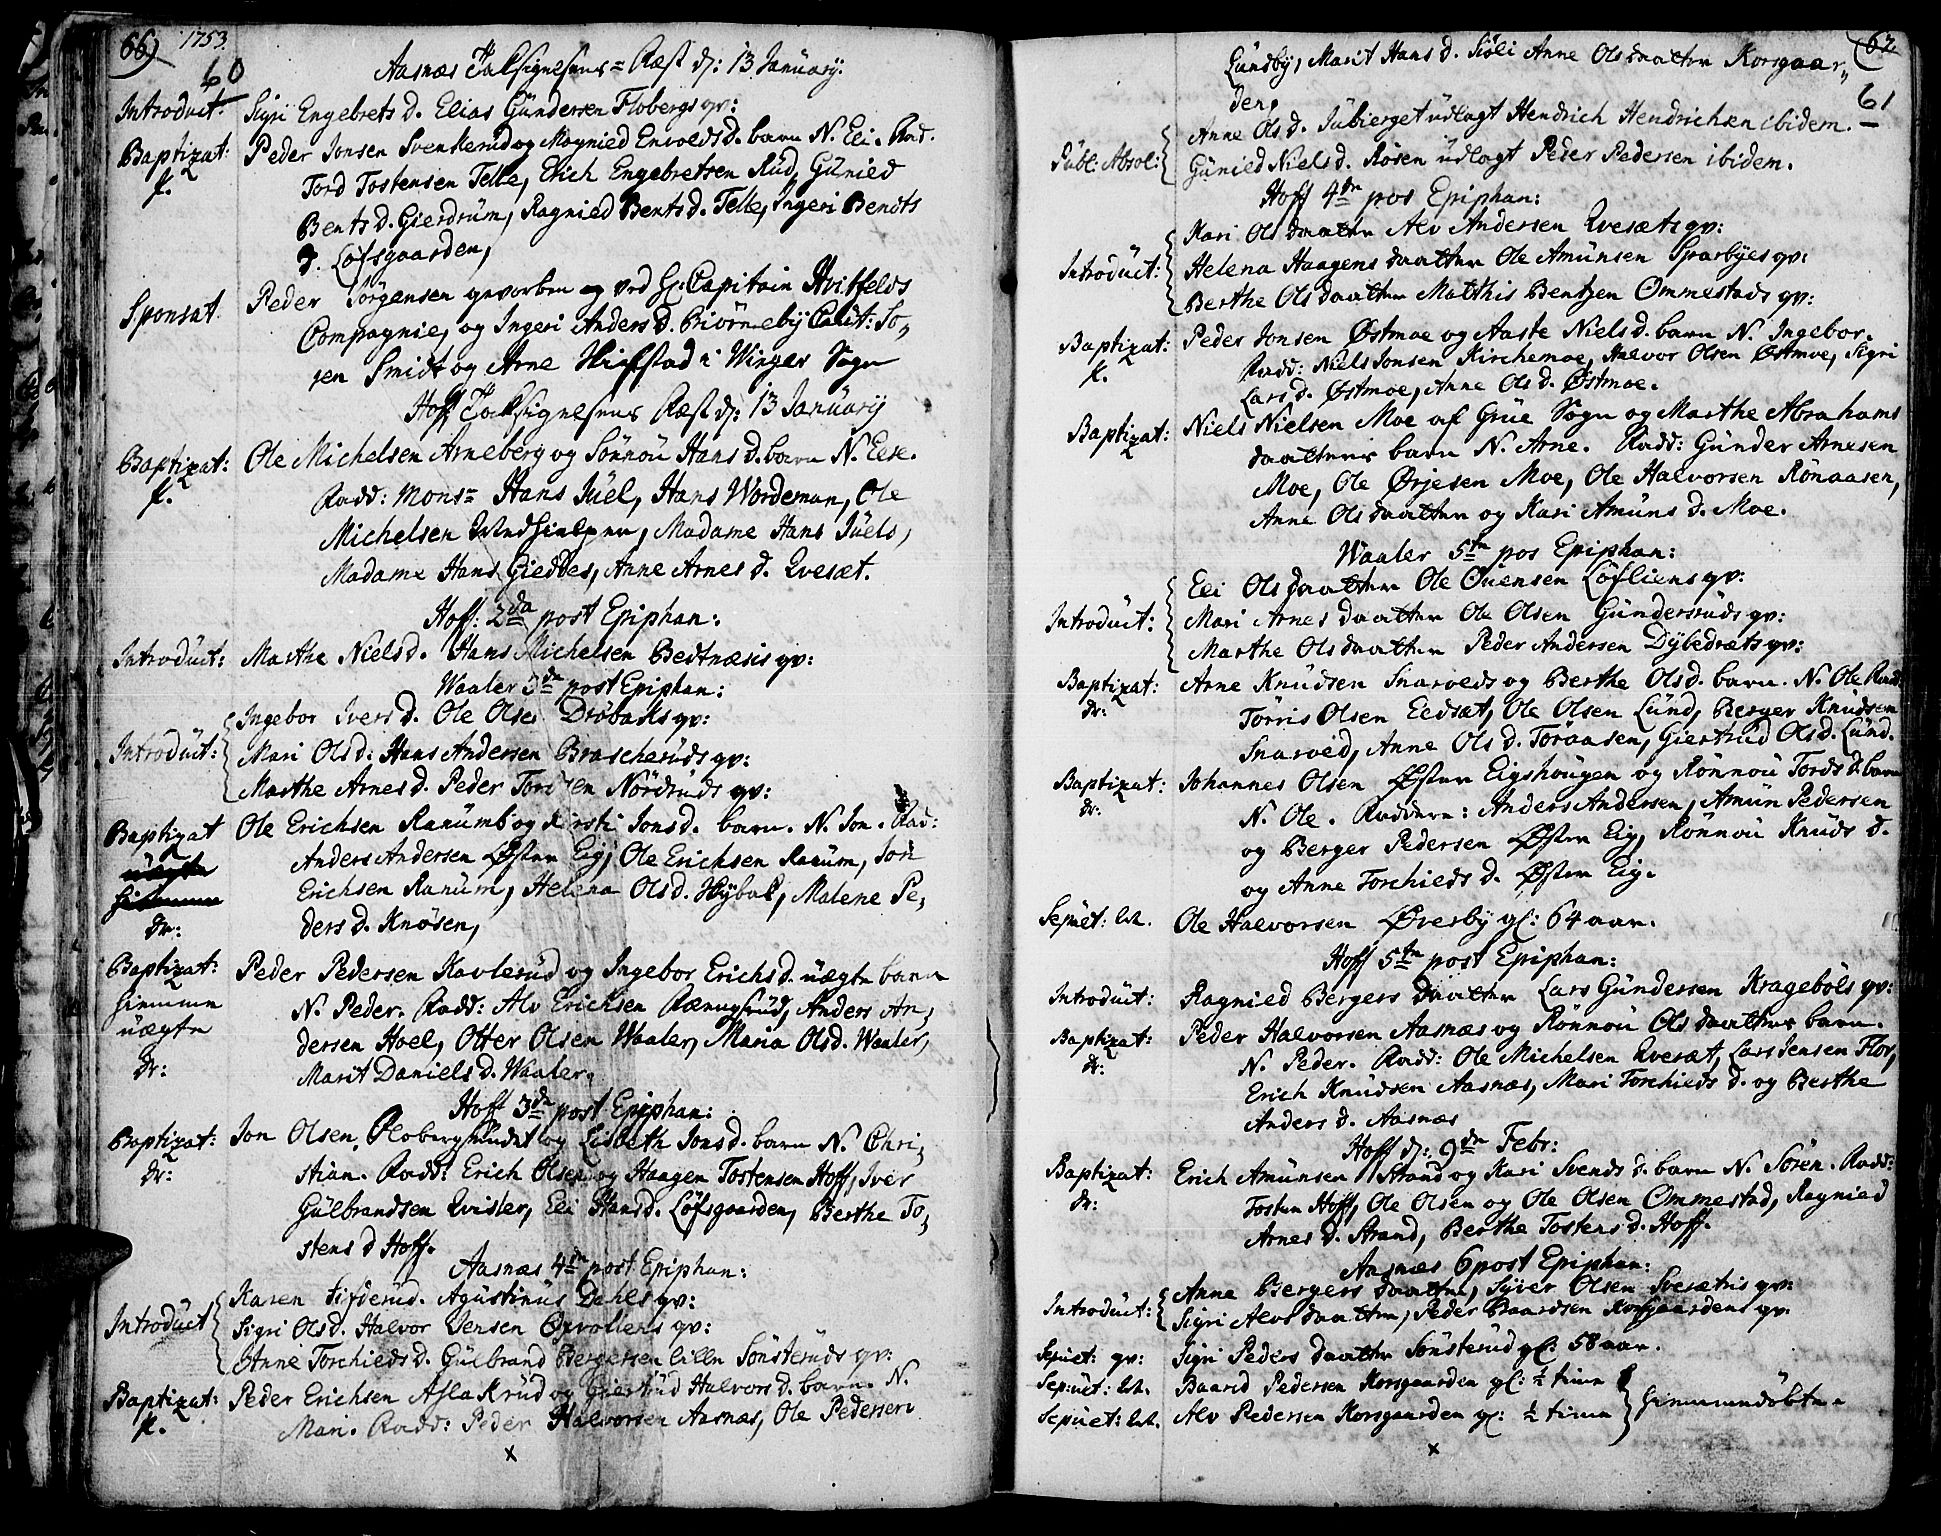 66) 1753.
60
Aasnæs Taksigelsens = Fæst d: 13 January.
Introduct. Sigri Engebrets d. Elias Gündersen Flobergs qv:
Baptizat: Peder Jonsen Svenkerud og Magnied Envolds d. barn N. Eli. Fad.
f. Tord Tostensen Telle, Erich Engebretsen Rüd, Günied
Bents d. Gierdrüm, Ragnied Bents d. Telle, Ingeri Bents
d. Löfsgaarden,
Sponsat. Peder Jörgensen gevorben og ved H: Capitain Hvitfelds
Compagnie, og Ingeri Anders d. Biörneby Calit: Jö,
gen Smidt og Arne Skifstad i Winger Sogn
Hoff Taksigelsens Fæst d: 13 January
Baptizat: Ole Michelsen Arneberg og Sönnou Hans d. barn N. Else.
f. Fadd: Mons= Hans Juel, Hans Wordeman, Ole
Michelsen, Madame Hans Juels,
Madame Hans Gieddes, Anne Arnes d. Qvesæt.
Hoff: 2da post Epiphan:
Introdüct: Marthe Niels d. Hans Michelsen Bedtnæsis qv:
Waaler 3de post Epiphan:
Ingebor Ivers d. Ole Olsen Dröbaks qv:
Introdüct: Mari Ols d: Hans Andersen Brascherüds qv:
Marthe Arnes d. Peder Tordsen Nordrüds qv:
Baptizat Ole Erichsen Ranümb og Kirsti Jons d. barn. N. Jon. Fad:
Anders Andersen Østre Eig, Ole Erichsen Ranüm, Jon
Erichsen Ranüm, Helena Ols d. Hÿbak, Malene Pe,
dr: ders d. Knösen,
Baptizat: Peder Pedersen Kavlerüd og Ingebor Erichs d. uægte barn
hiemme N. Peder. Fadd: Alv Erichsen, Anders An,
uægte dersen Hoel, Otter Olsen Waaler, Maria Ols d. Waaler,
dr: Marit Daniels d. Waaler.
Hoff 3de post Epiphan:
Baptizat: Jon Olsen Flobergshündet og Lisbeth Jons d. barn N. Chri,
dr: stian. Fadd: Erich Olsen og Haagen Tostensen Hoff, Iver
Gülbrandsen Qvisler, Eli Hans d. Löfsgaarden, Berthe To,
stens d Hoff.
Aasnæs 4de post Epiphan:
Karen. Agustinüs Dahls qv:
Introdüct Sigri Ols d. Halvor Jensen Opvollens qv:
Anne Torchieds d. Gülbrand Bergersen lille Sönsterüds qv:
Baptizat: Peder Erichsen Aslakrüd og Giertrüd Halvors d. barn. N.
f. Mari. Fadd: Peder Halvorsen Aasnæs, Ole Pedersen
x
(62
61
Lündby, Marit Hans d. Siöli Anne Ols daatter Korsgaar„
den,
Anne Ols d. Jübierget üdlagt Hendrich Hendrichsen ibidem.
Pübl: Absol: Günied Niels d. Rosen üdlagt Peder Pedersen ibidem.
Hoff 4de pos Epiphan:
Kari Ols daatter Alv Andersen Qvesæts qv:
Introdüct: Helena Haagens daatter Ole Amünsen Sparbyes qv:
Berthe Ols daatter Matthis Bentzen Ommestads qv:
Baptizat: Peder Jonsen Østmoe og Aaste Niels d. barn N. Ingebor.
f. Fadd: Niels Jonsen Kirchemoe, Halvor Olsen Østmoe, Sigri
Lars d. Østmoe, Anne Ols d. Østmoe.
Baptizat: Niels Nielsen Moe af Grüe Sogn og Marthe Abrahams
daatters barn N. Arne. Fadd: Günder Arnesen
Moe, Ole Ørjesen Moe, Ole Halvorsen Rönaasen,
Anne Ols daatter og Kari Amüns d. Moe.
Waaler 5te pos Epiphan:
Eli Ols daatter Ole Ouensen Löfliens qv:
Introdüct: Mari Arnes daatter Ole Olsen Gündersrüds qv:
Marthe Ols daatter Peder Andersen Dÿbedræts qv:
Baptizat: Arne Knüdsen Snarveds og Berthe Ols d. barn. N. Ole Fadd
dr: Törris Olsen Eedsæt, Ole Olsen Lünd, Berger Knüdsen
Snarved, Anne Ols d. Toraasen, Giertrüd Ols d. Lünd.
Baptizat: Johannes Olsen Østre Eigshoügen og Rönnoü Tords d. barn
dr: N. Ole. Faddere: Anders Andersen, Amün Pedersen
og Berger Pedersen Østre Eig, Rönnoü Knüds d.
og Anne Torchieds d. Østre Eig.
Sepüet: Ole Halvorsen Øverby gl: 64 aar.
Hoff 5te post Epiphan:
Introdüct: Ragnied Bergers daatter Lars Gündersen Krageböls qv:
Baptizat: Peder Halvorsen Aasnæs og Rönnoü Ols daatters barn.
dr: N. Peder. Fadd: Ole Michelsen Qvesæt, Lars Jensen Flor,
Erich Knudsen Aasnæs, Mari Torchieds d. og Berthe
Anders d. Aasnæs
Hoff d: 9de Febr:
Baptizat: Erich Amünsen Strand og Kari Svends d. barn N. Sören. Fadd:
dr: Tosten Hoff, Ole Olsen og Ole Olsen Ommestad, Ragnied
Arnes d. Strand, Berthe Tostens d. Hoff.
Aasnæs 6 post Epiphan:
Anne Bergers daatter, Syver Olsen Svesætris qv:
Introdüct: Sigri Alvs daatter, Peder Baardsen Korsgaardens qv.
Sepüet: qv: Sigri Peders daatter Sönsterüd gl: 58 aar.
Sepüet: Baard Pedersen Korsgaarden gl: ½ time
hiemmedöbte.
Sepüet: Alv Pedersen Korsgaarden gl: ½ time
x